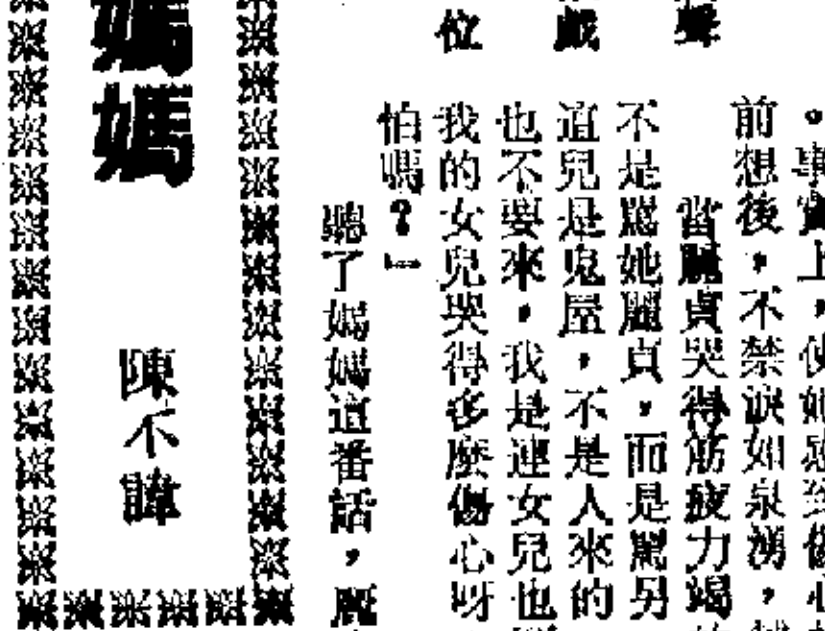 。事實上，使她感到傷心
前想後，不禁淚如泉湧，
當麗貞哭得筋疲力竭
不是罵她麗貞，而是罵另
道兒是鬼屋，不是人來的
也不要來，我是連女兒也
我的女兒哭得多麼傷心呀
怕嗎？」
聽了媽媽這番話，麗
聲
戲
位
媽媽
陳不諱